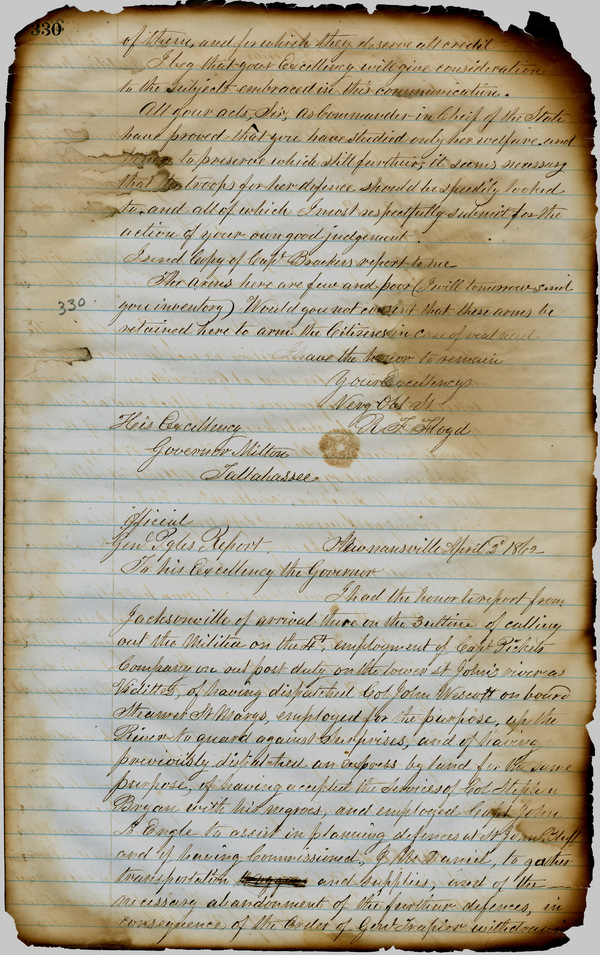 330
of them, and for which they deserve all credit
I beg that your Excellency will give consideration
to the subjects embraced in this communication.
All your acts, Sir, as Commander in Cheif of the State
have proved that you have studied only her welfare and
to preserve which still further, it seems necessary
that the troops for her defence should be speedily looked
to, and all of which I most respectfully submit for the
action of your own good judgement.
I send Copy of Capt Brackers report to me
The arms here are few and poor (I will tomorrow send
you inventory) Would you not consent that these arms be
retained here to arm the Citizens in case of real need
330
I have the honor to remain
Your Excellencys
Very Obt St
R. F. Floyd
His Excellency
Governor Milton
Tallahassee
Official
Genl Report. Newnansville April 2d 1862
To his Excellency the Governor
I had the honor to report from
Jacksonville of arrival there on the of calling
out the Militia on the employment of Capt Picketts
Company on out post duty on the lower St Johns river as
Vidittes, of having dispatched Col John Wescott on board
Steamer St Marys, employed for the purpose, up the
River to guard against Surprises, and of having
previously dispatched an express by land for the same
purpose, of having accepted the services of Col Stephen
Bryan with his negroes, and employed Capt John
Engle to assist in planning defences at St Johns Bluff
and of having Commissioned, Daniel, to gather
transportation and supplies, and of the
necessary abandonment of the further defences, in
consequence of the Order of Genl Trapier withdrawing